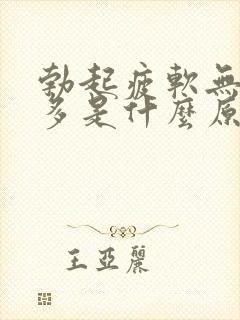 勃起疲軟無
多是什麼原
王亞麗